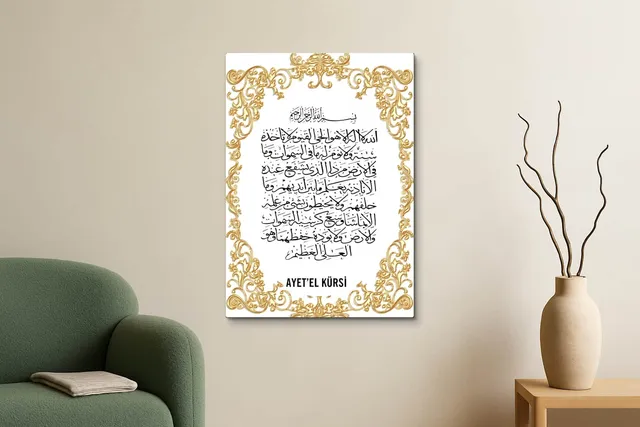 بسم الله الرحمن الرحيم
الله لا اله الا هو الحي القيوم لا تأخذه
سنة ولا نوم له ما في السموات وما
في الارض من ذا الذي يشفع عنده
الا باذنه يعلم ما بين ايديهم وما
خلفهم ولا يحيطون بشئ من علمه
الا بما شاء وسع كرسيه السموات
والارض ولا يؤده حفظهما وهو
العلي العظيم
AYET'EL KÜRSİ